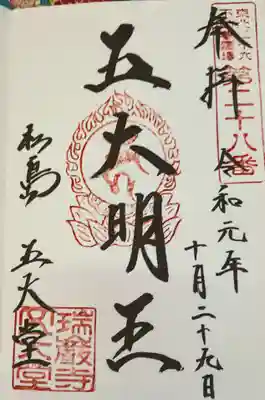 第二十八番
奉拝
令和元年
十月二十九日
五大明王
松島
五大堂
瑞巖寺
五大堂